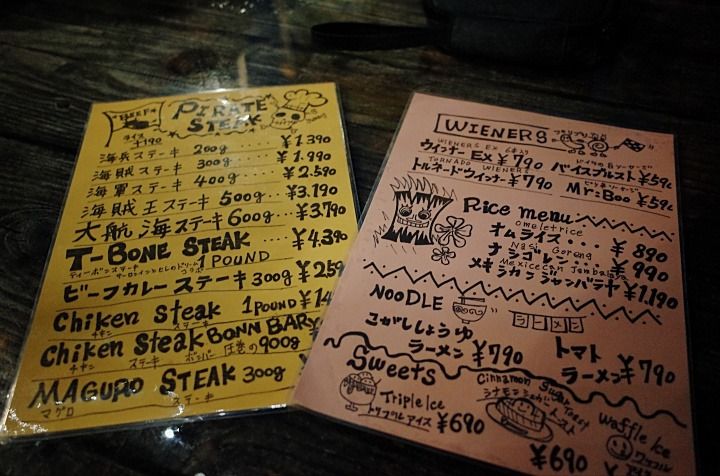 BEEF
PIRATE
STEAK
ライス
¥190
海兵ステーキ 200g ¥1.390
海賊ステーキ 300g ¥1.990
海軍ステーキ 400g ¥2.590
海賊王ステーキ 500g ¥3.190
大航海ステーキ 600g ¥3.790
T-BONE STEAK ¥4.390
ティーボンステーキ 1 POUND
ビーフカレーステーキ 300g ¥259
Chiken steak 1POUND ¥14
チキン ステーキ
Chiken steak BONN BARY
チキン ステーキ ボンバー 圧巻の900g
MAGURO STEAK 300g
マグロ ステーキ
WIENERS
WIENERS EX 6本入り
ウインナーEX ¥790
TORNADO WIENERS
トルネードウインナー ¥790
バイスブルスト ¥590
Mr.Boo ¥590
Rice menu
omeletrice
オムライス・・・ ¥890
Nasi Goreng
ナシゴレン ¥990
Mexicecan Jambalaya
メキシカンジャンバラヤ ¥1.190
NOODLE ラーメン
こがししょうゆ
ラーメン ¥790
トマト
ラーメン ¥790
Sweets
Triple Ice
トリプルアイス ¥690
Cinnamon Sugar Toast
シナモンシュガートースト
¥690
Waffle Ice
ワッフル
アイス